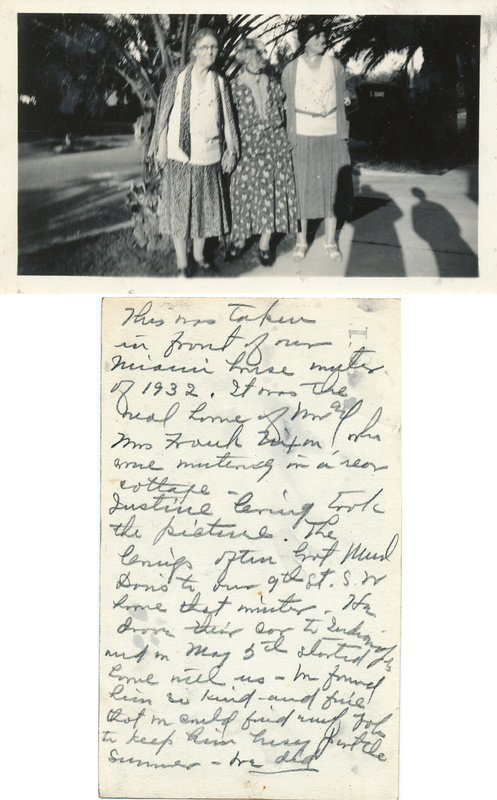 This was taken
in front of our
Miami house winter
of 1932. It was the
real home of Mr and
Mrs Frank Nixon who
were wintering in a rear
cottage -
Justine took
the picture. The
often
to our 9th St. S.W
home that winter - He
drove their car to
and on May 5th started
home with us - We found
him so kind - and fine
that we could find
to keep him busy for the
summer - We did